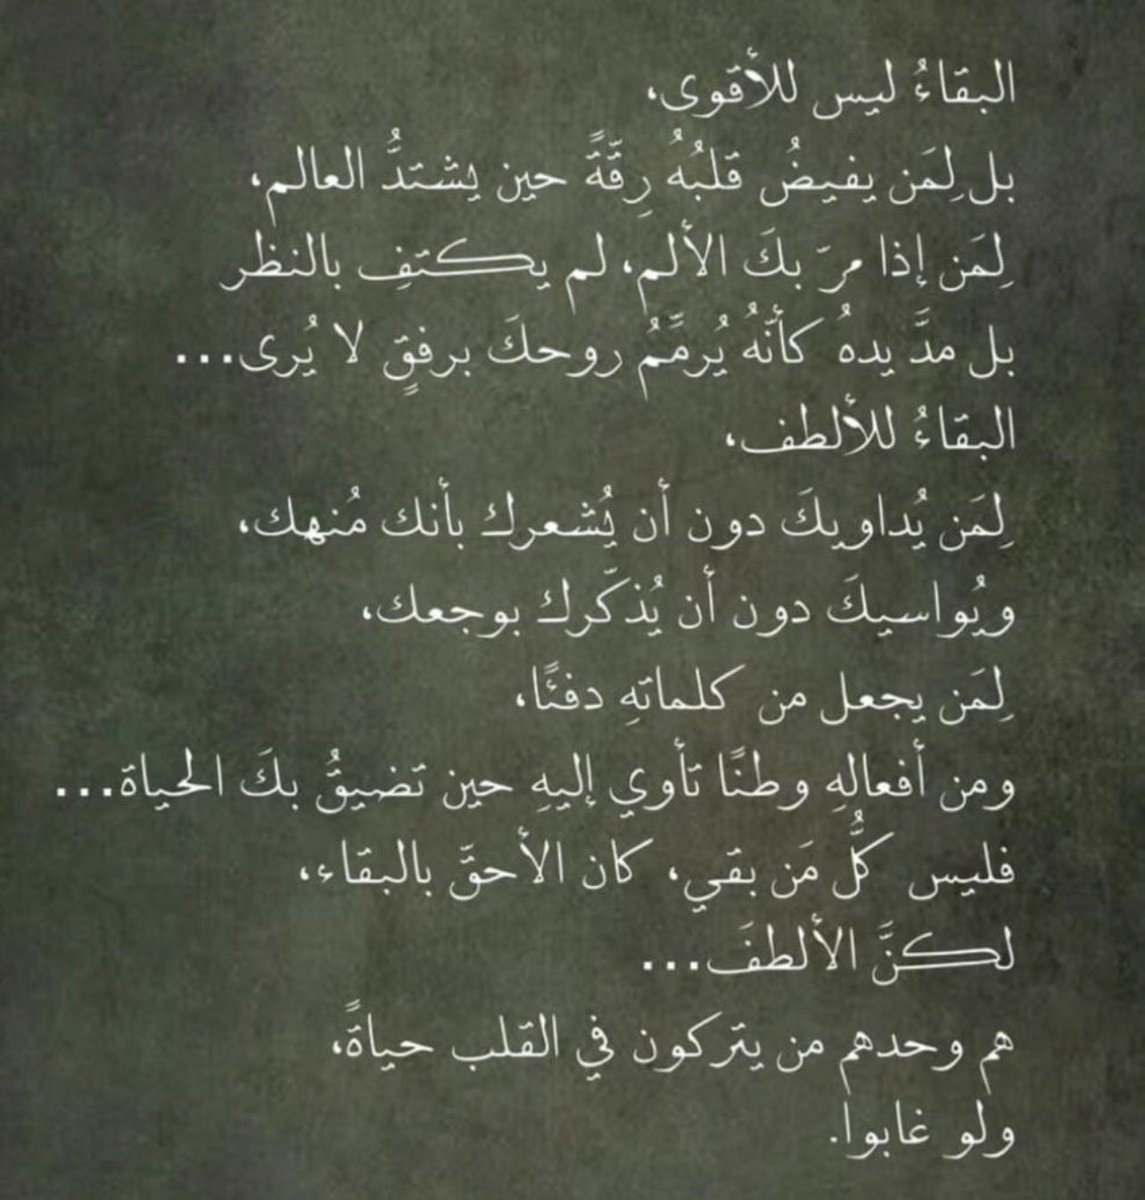 البقاءُ ليس للأقوى،
بل لِمَن يفيضُ قلبُهُ رِقَّةً حين يشتدُّ العالم،
لِمَن إذا مرّ بكَ الألم، لم يكتفِ بالنظر
بل مدَّ يدهُ كأنَّهُ يُرمِّمُ روحكَ برفقٍ لا يُرى...
البقاءُ للألطف،
لِمَن يُداويكَ دون أن يُشعرك بأنك مُنهك،
ويُواسيكَ دون أن يُذكّرك بوجعك،
لِمَن يجعل من كلماتهِ دفئًا،
ومن أفعالهِ وطنًا تأوي إليهِ حين تضيقُ بكَ الحياة...
فليس كلُّ مَن بقي، كان الأحقّ بالبقاء،
لكنَّ الألطفَ...
هم وحدهم من يتركون في القلب حياةً،
ولو غابوا.